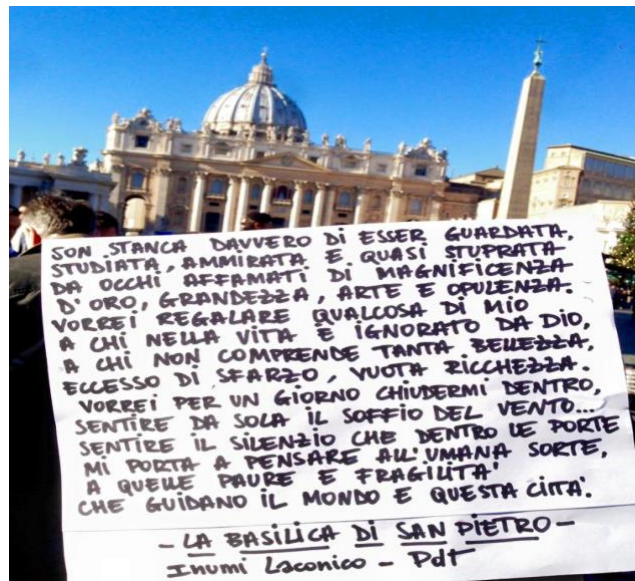 SON STANCA DAVVERO DI ESSER GUARDATA,
STUDIATA, AMMIRATA E QUASI STUPRATA
DA OCCHI AFFAMATI DI MAGNIFICENZA
D'ORO, GRANDEZZA, ARTE E OPULENZA.
VORREI REGALARE QUALCOSA DI MIO
A CHI NELLA VITA È IGNORATO DA DIO,
A CHI NON COMPRENDE TANTA BELLEZZA,
ECCESSO DI SFARZO, VUOTA RICCHEZZA.
VORREI PER UN GIORNO CHIUDERMI DENTRO,
SENTIRE DA SOLA IL SOFFIO DEL VENTO...
SENTIRE IL SILENZIO CHE DENTRO LE PORTE
MI PORTA A PENSARE ALL'UMANA SORTE,
A QUELLE PAURE E FRAGILITA'
CHE GUIDANO IL MONDO E QUESTA CITTA'.
- LA BASILICA DI SAN PIETRO -
Inumi Laconico - PdT